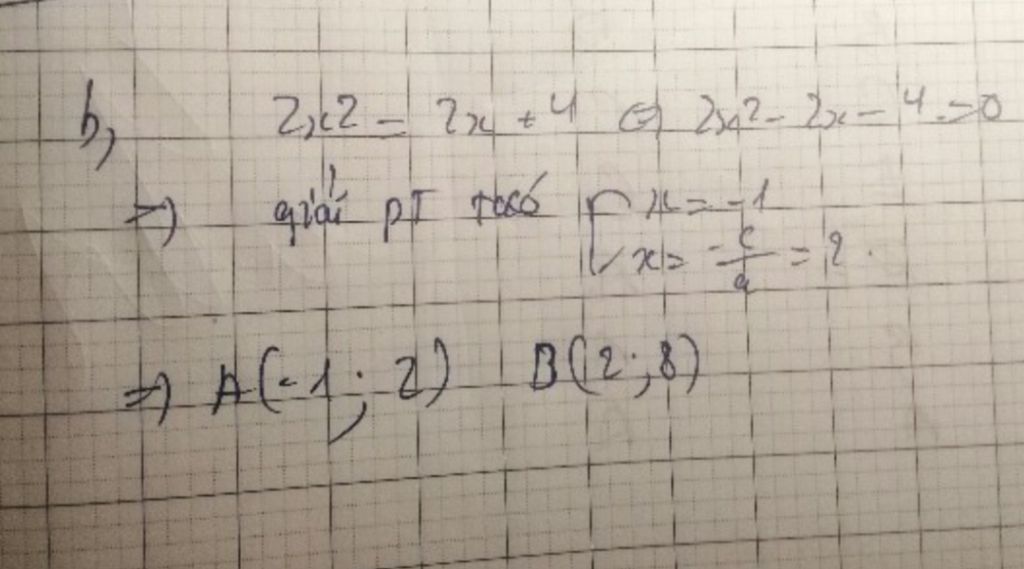 b, 2x2 = 2x + 4 ⇔ 2x2 - 2x - 4 = 0
=> giải pT ta có [ x = -1
x = -c/a = 2.
=> A(-1; 2) B(2; 8)